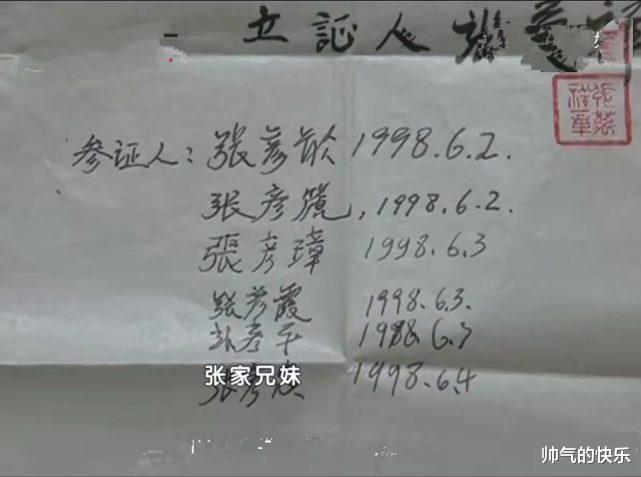 立証人張
参证人：張彦欽 1998.6.2.
张彦骥，1998.6.2.
張彦璋 1998.6.3
张彦霞 1998.6.3.
张彦平 1998.6.3
张家兄妹
张彦 1998.6.4
帅气的快乐